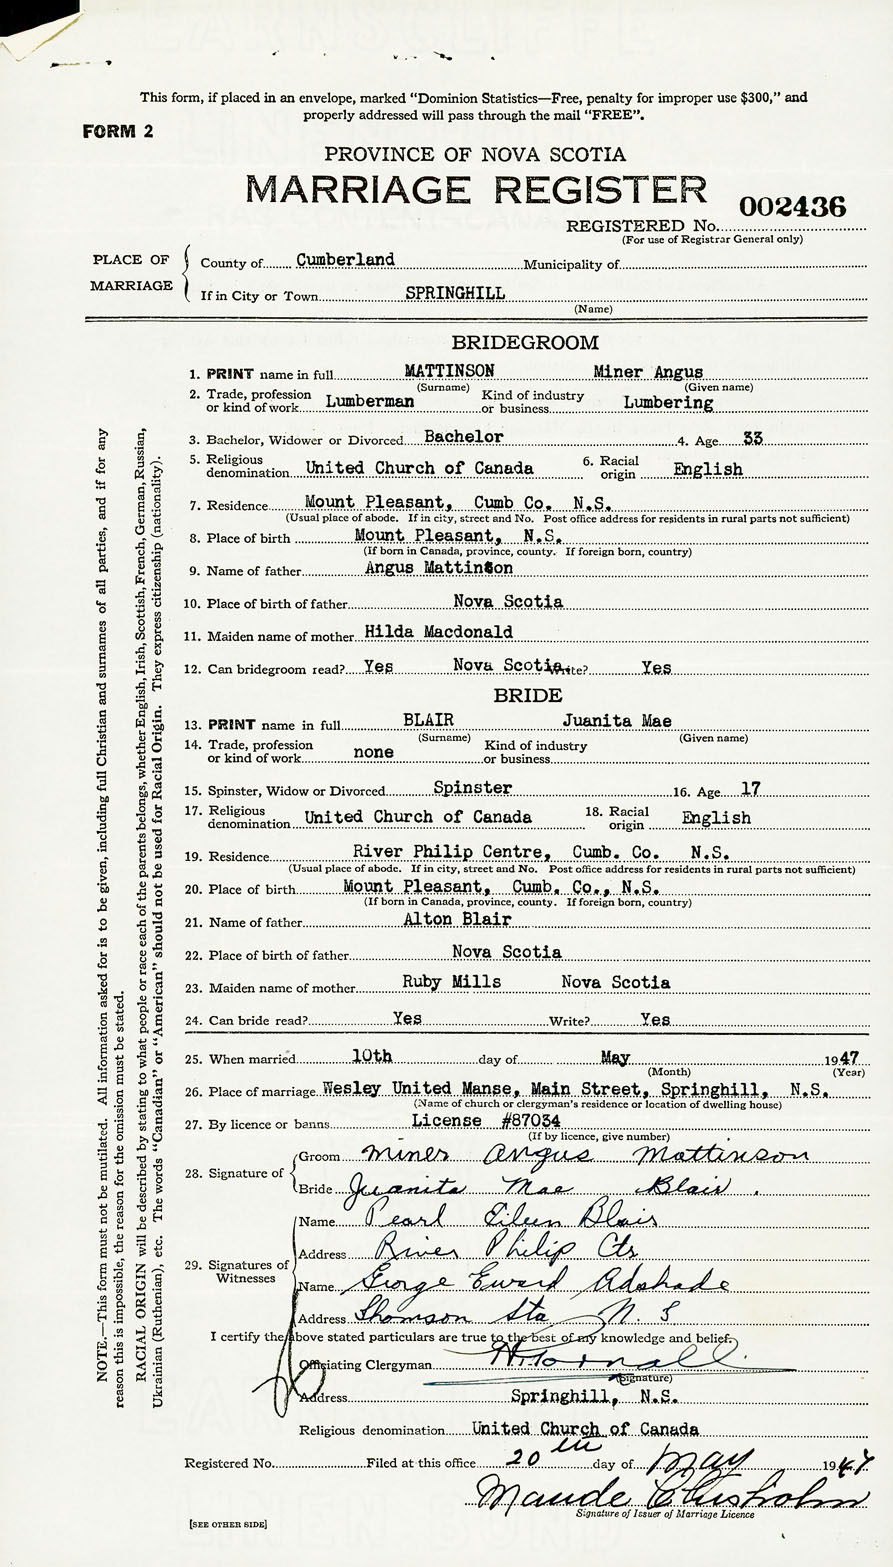 This form, if placed in an envelope, marked "Dominion Statistics—Free, penalty for improper use $300," and
properly addressed will pass through the mail "FREE".
FORM 2
PROVINCE OF NOVA SCOTIA
MARRIAGE REGISTER
002436
REGISTERED No.
(For use of Registrar General only)
PLACE OF MARRIAGE
County of Cumberland Municipality of
If in City or Town SPRINGHILL
(Name)
BRIDEGROOM
1. PRINT name in full MATTINSON Miner Angus
(Surname) (Given name)
2. Trade, profession or kind of work Lumberman Kind of industry or business Lumbering
3. Bachelor, Widower or Divorced Bachelor 4. Age 33
5. Religious denomination United Church of Canada 6. Racial origin English
7. Residence Mount Pleasant, Cumb Co. N.S.
(Usual place of abode. If in city, street and No. Post office address for residents in rural parts not sufficient)
8. Place of birth Mount Pleasant, N.S.
(If born in Canada, province, county. If foreign born, country)
9. Name of father Angus Mattinson
10. Place of birth of father Nova Scotia
11. Maiden name of mother Hilda Macdonald
12. Can bridegroom read? Yes Nova Scotia. Write? Yes
BRIDE
13. PRINT name in full BLAIR Juanita Mae
(Surname) (Given name)
14. Trade, profession or kind of work none Kind of industry or business
15. Spinster, Widow or Divorced Spinster 16. Age 17
17. Religious denomination United Church of Canada 18. Racial origin English
19. Residence River Philip Centre, Cumb. Co. N.S.
(Usual place of abode. If in city, street and No. Post office address for residents in rural parts not sufficient)
20. Place of birth Mount Pleasant, Cumb. Co., N.S.
(If born in Canada, province, county. If foreign born, country)
21. Name of father Alton Blair
22. Place of birth of father Nova Scotia
23. Maiden name of mother Ruby Mills Nova Scotia
24. Can bride read? Yes Write? Yes
25. When married 10th day of May 1947
(Month) (Year)
26. Place of marriage Wesley United Manse, Main Street, Springhill, N.S.
(Name of church or clergyman's residence or location of dwelling house)
27. By licence or banns License #87034
(If by licence, give number)
28. Signature of
Groom Miner Angus Mattinson
Bride Juanita Mae Blair.
29. Signatures of Witnesses
Name Pearl Eileen Blair
Address River Philip Ctr
Name George Eward Adshade
Address Thomson Sta N.S
I certify the above stated particulars are true to the best of my knowledge and belief.
Officiating Clergyman
(Signature)
Address Springhill, N.S.
Religious denomination United Church of Canada
Registered No. Filed at this office 20th day of May 1947
Maude Chisholm
Signature of Issuer of Marriage Licence
[SEE OTHER SIDE]
NOTE.—This form must not be mutilated. All information asked for is to be given, including full Christian and surnames of all parties, and if for any
reason this is impossible, the reason for the omission must be stated.
RACIAL ORIGIN will be described by stating to what people or race each of the parents belongs, whether English, Irish, Scottish, French, German, Russian,
Ukrainian (Ruthenian), etc. The words "Canadian" or "American" should not be used for Racial Origin. They express citizenship (nationality).